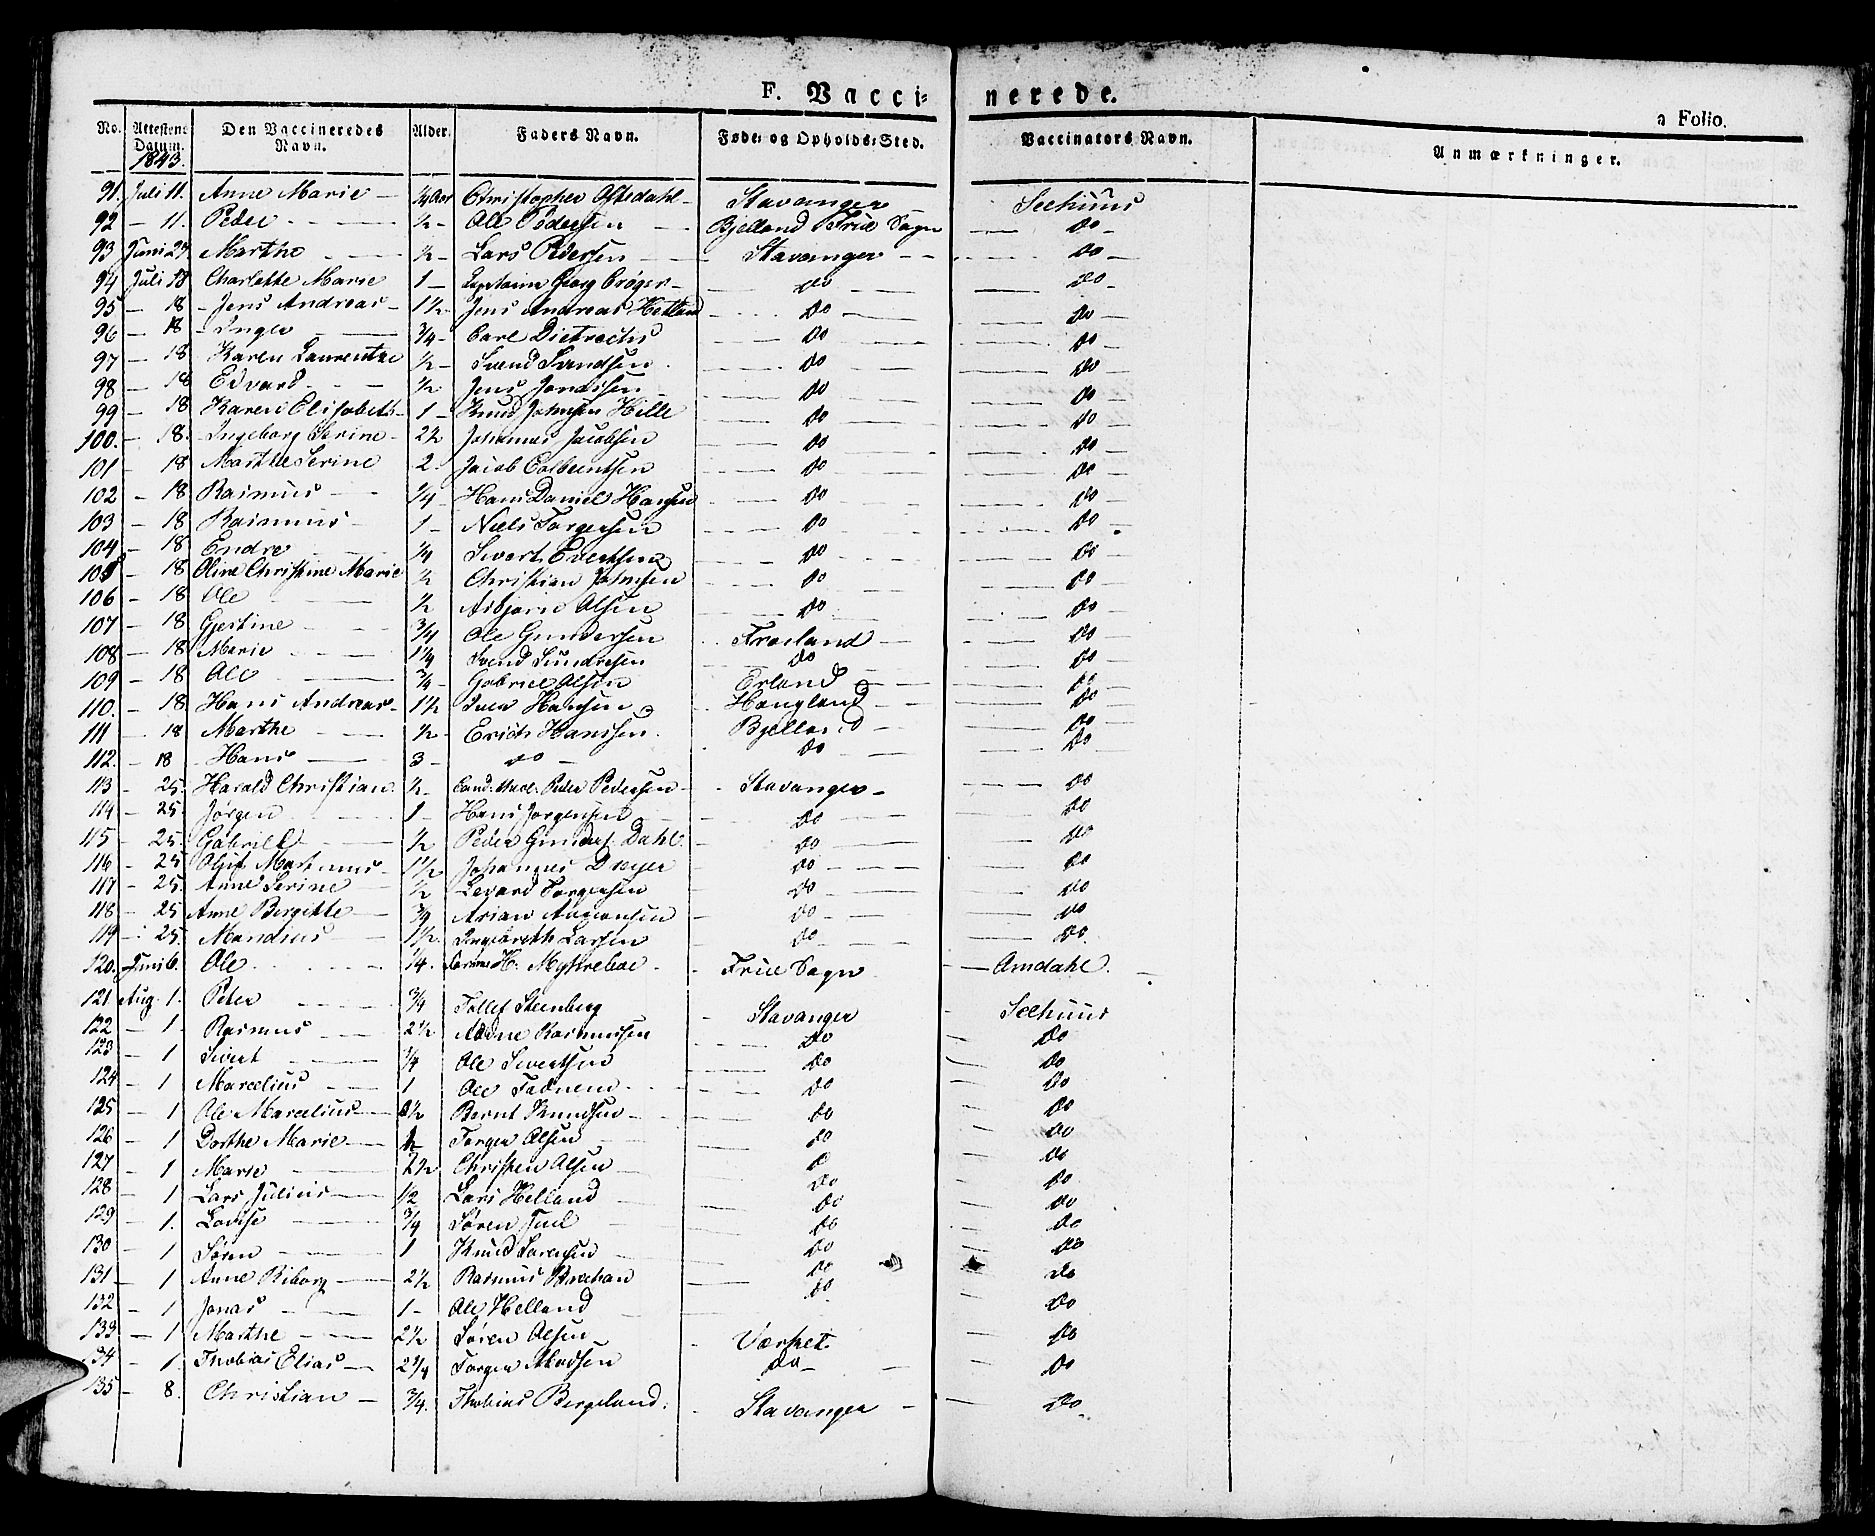 F. Vacci= nerede.
a Folio.
No. Attestens Datum. Den Vaccineredes Navn. Alder. Faders Navn. Føde= og Opholds=Sted. Vaccinators Navn. Anmærkninger.
1843.
91. Juli 11. Anne Marie — 1/4 Aar Christopher Oftedahl - Stavanger Seehuus
92 — 11. Peder 1/2 - Ole Pedersen Bjelland Frue Sogn do
93 Juni 27 Marthe 1/2 - Lars Pedersen Stavanger do
94 Juli 18 Charlotte Marie 1 — Georg do do
95 — 18 Jens Andreas 1 1/2 - Jens Andreas Hetland do do
96 — 18 Inger 3/4 - Carl Dietrichs do do
97 — 18 Karen Laurentze 1/2 - Svend Svendsen do do
98 — 18 Edvard 1/2 Jens do do
99 — 18 Karen Elisabeth 1 - Knud Johnsen Hille do do
100. — 18. Ingeborg Serine 2 1/2 Johannes Jacobsen do do
101 — 18 Marthe Serine 2. Jacob do do
102 — 18 Rasmus 1/4 Hans Daniel Hansen do do
103 — 18 Rasmus 1 - Niels Torgersen do do
104 — 18 Endre 1/4 Sivert do do
105 — 18 Oline Christine Marie 1/2 Christian Johnsen do do
106 — 18 Ole 1/2 Asbjørn Olsen do do
107 — 18 Gjertine 3/4 Ole Gundersen do
108 — 18 Marie 1 1/4 Svend do do
109 — 18 Ole 3/4 - Gabriel Olsen Erland do
110. — 18 Hans Andreas 1 1/2 Iver Hansen Haugland do
111 — 18 Marthe 1/2 - Erich Hanssen Bjelland do
112. — 18 Hans 3 - do do do
113 — 25. Harald Christian 1/2 - Cand. Peder Pedersen Stavanger do
114 — 25. Jørgen 1 - Hans Jørgensen do do
115 — 25. Gabriel 1/2 Peder Gunders. Dahl do do
116 — 25 Martinus 1 1/2 Johannes Dreyer do do
117 — 25. Anne Serine 1/2 Torgersen do do
118 — 25 Anne Bergitte 3/4 Arian do do
119 — 25. Mandius 1 1/2 Ingebreth Larsen do do
120. Juni 6. Ole 1/4. H. Frue Sogn Amdahl.
121 Aug. 1. Peter 3/4 Tollef Steenberg Stavanger Seehuus
122 — 1 Rasmus 2 1/2 Aadne Rasmussen do do
123 — 1 Sivert 3/4 Ole Sivertsen do do
124 — 1 Marcelius 1 Ole do do
125 — 1 Ole Marcelius Bernt Knudsen do do
126 — 1 Dorthe Marie 1/2 Torger Olsen do do
127 — 1 Marie 2 1/2 Christen Olsen do do
128 — 1 Lars Julius 1/2 Lars Helland do do
129 — 1. Lovise 3/4 Søren Juul do do
130 — 1 Søren 1 Knud Sørensen do do
131 — 1 Anne Riborg 2 1/2 Rasmus do do
132 — 1 Jonas 1 - Ole Helland do do
133 — 1 Marthe 2 1/2 Søren Olsen Værket do
134 — 1. Thobias Elias 2 1/4 Torger Madsen do do
135 — 8. Christian 3/4. Thobias Bergeland. Stavanger do